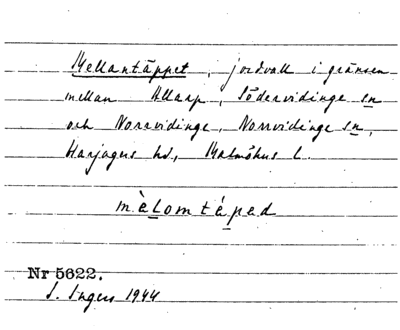 Mellantäppet, jordvall i gränsen
mellan Allarp, Södervidinge sn
och Norrvidinge, Norrvidinge sn,
Harjagers hd., Malmöhus l.
mèlomtéped
Nr 5622.
I. Ingers 1944